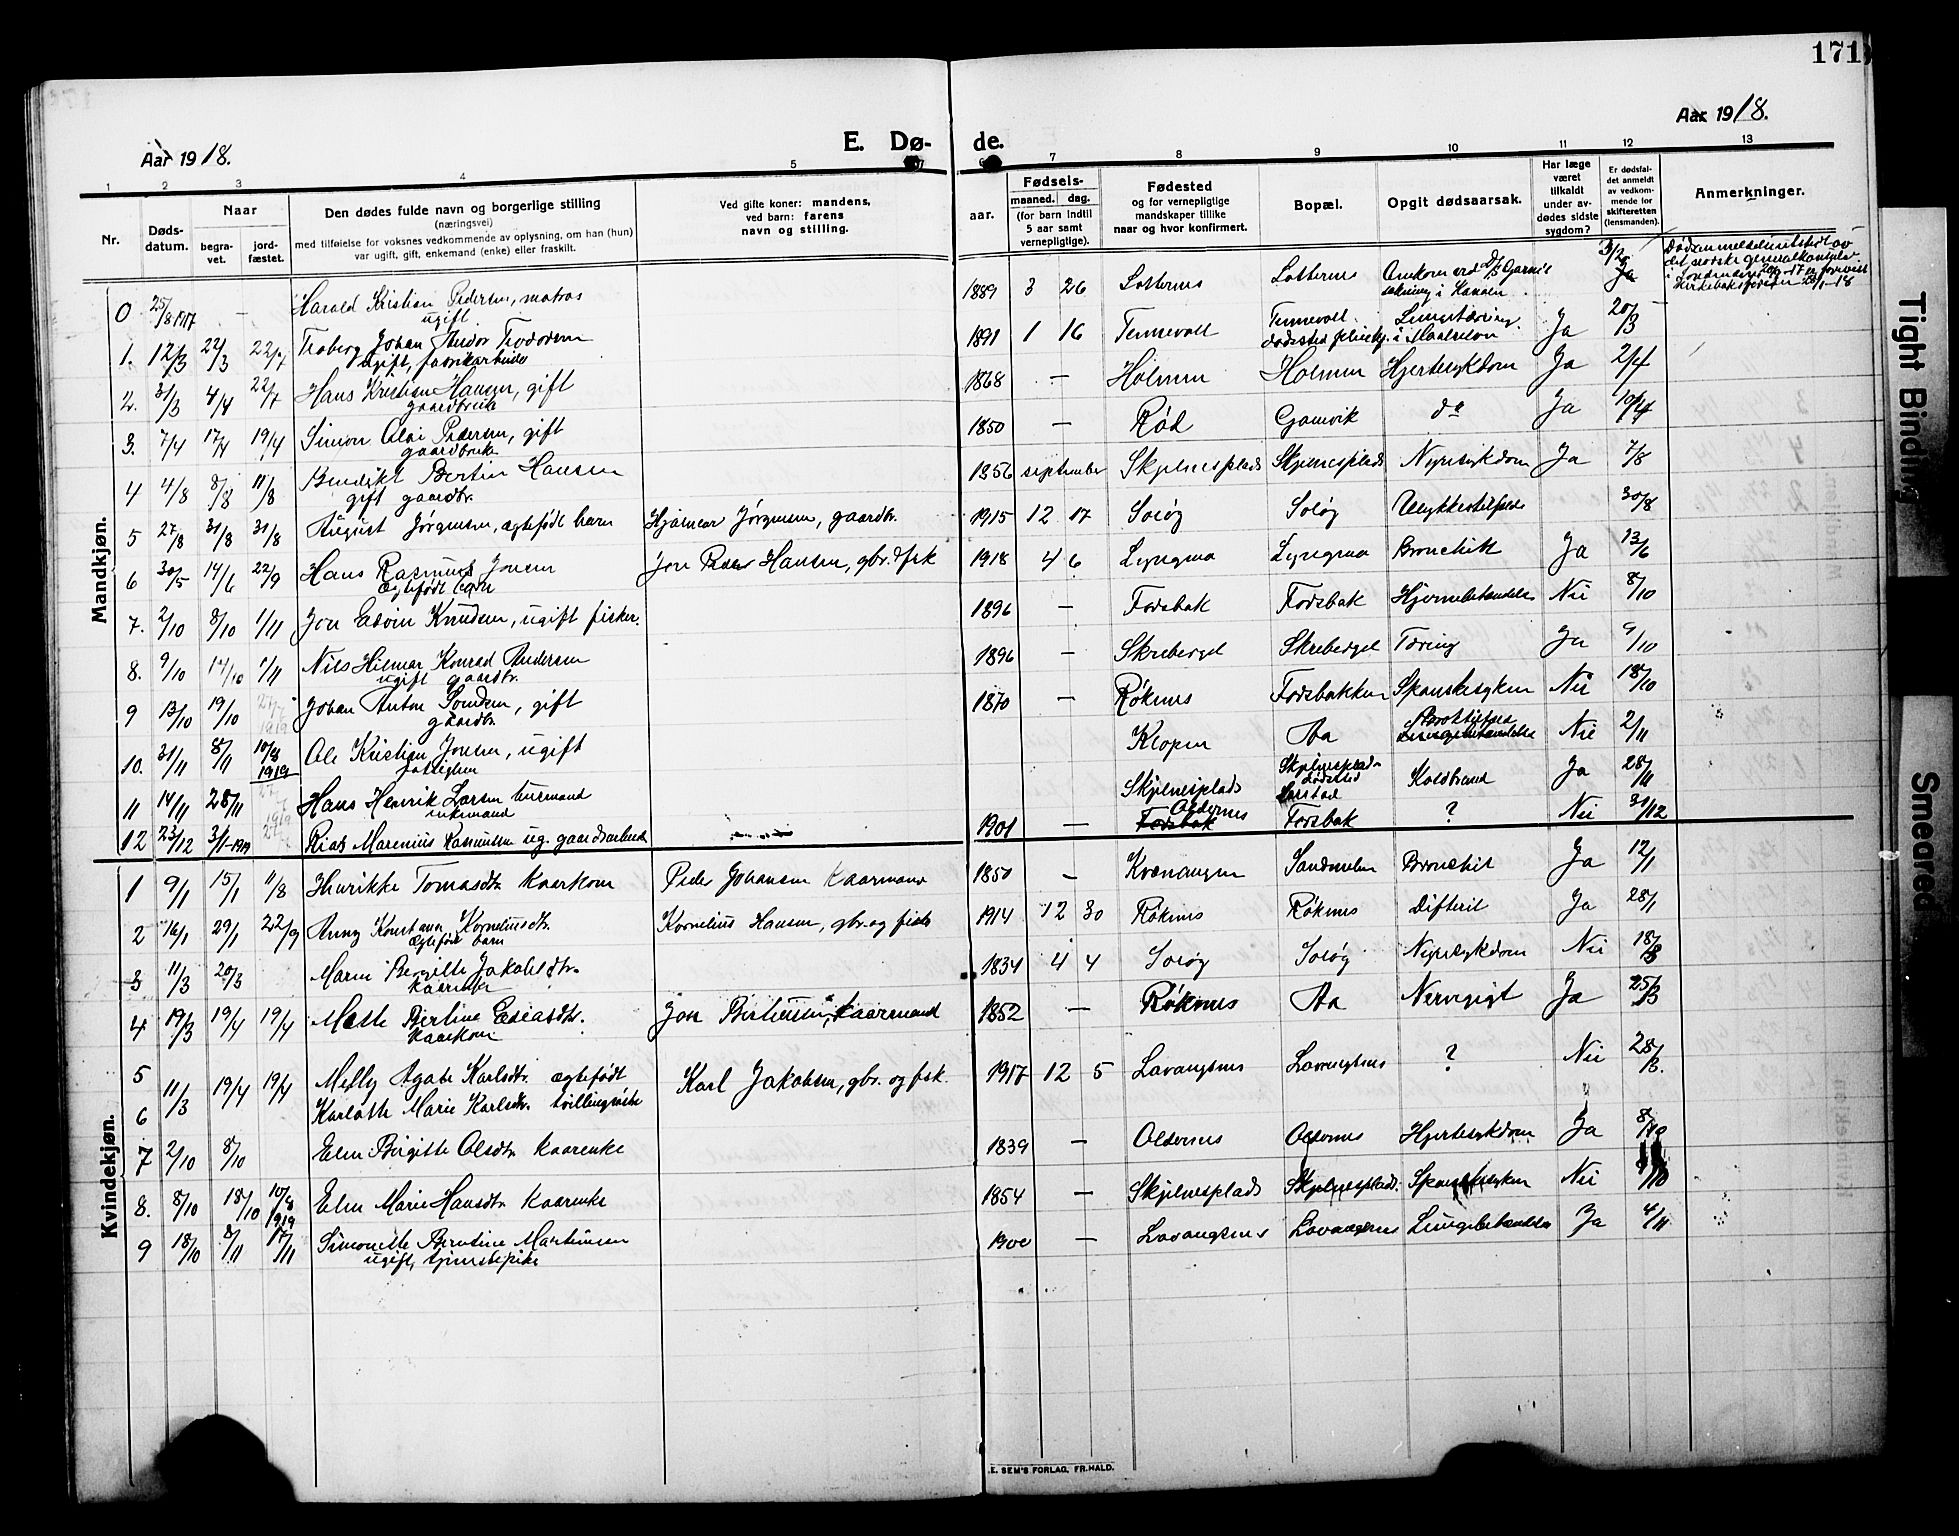 171
Aar 1918.
E. Dø-
de.
Aar 1918.
1 2 3 4 5
7 8 9 10 11 12 13
Nr.
Døds-
datum.
Naar
begra-
vet.
jord-
fæstet.
Den dødes fulde navn og borgerlige stilling
(næringsvei)
med tilføielse for voksnes vedkommende av oplysning, om han (hun)
var ugift, gift, enkemand (enke) eller fraskilt.
Ved gifte koner: mandens,
ved barn: farens
navn og stilling.
Fødsels-
aar.
maaned. dag.
(for barn indtil
5 aar samt
vernepligtige).
Fødested
og for vernepligtige
mandskaper tillike
naar og hvor konfirmert.
Bopæl.
Opgit dødsaarsak.
Har læge
været
tilkaldt
under av-
dødes sidste
sygdom?
Er dødsfal-
det anmeldt
av vedkom-
mende for
skifteretten
(lensmanden).
Anmerkninger.
Mandkjøn.
0 25/8 1917 - Harald Kristian Pedersen, matros
ugift
1889 3 26 Lotternes Lotternes
3/2 Ja
det norske generalkonsulat
1. 12/3 22/3 22/7 Johan
ugift, fabrikarbeider
1891 1 16 Tennevoll Tennevoll Ja 20/3
2. 31/3 4/4 22/7 Hans Kristian Hansen, gift
gaardbruker
1868 - Holmen Holmen Hjertesykdom Ja 2/4
3. 7/4 17/4 19/4 Simon Olai Pedersen, gift
gaardbruker
1850 - Rød Gamvik do Ja 10/4
4 4/8 8/8 11/8 Benedikt Bertin Hansen
gift gaardbr.
1856 september Skjelnesplads Skjelnesplads Nyresykdom Ja 7/8
5 27/8 31/8 31/8 August Jørgensen, egtefødt barn Hjalmar Jørgensen, gaardbr.
1915 12 17 Soløg Soløg Ulykkestilfælde 30/8
6 30/5 14/6 22/9 Hans Rasmus Jonsen Jon Peder Hansen, gbr. & fisk
egtefødt barn
1918 4 6 Lyngmo Lyngmo Bronchit Ja 13/6
7. 2/10 8/10 1/11 Jon Edvin Knudsen, ugift fisker.
1896 - Fossbak Fossbak Hjernebetændelse Nei 8/10
8. 9/10 14/10 1/11 Nils Hilmar Konrad Andersen
ugift gaardbr.
1896 - Skrebergel Skrebergel Tæring Ja 9/10
9 13/10 19/10 Johan Anton , gift
gaardbr.
1870 - Røknes Fossbakken Spanskesyken Nei 18/10
10. 31/11 8/11 10/8 1919 Ole Kristian Jonsen, ugift
Klopen Aa Lungebetændelse Nei 2/11
11 14/11 28/11 Hans Henrik Larsen
enkemand
Skjelnesplads Skjelnesplads
dødssted
Koldbrand Ja 28/11
12 23/12 3/1-1919 Marenius Rasmussen ug. gaardsarbeider
1901 - Fossbak Oldernes Fossbak ? Nei 31/12
Kvindekjøn.
1 9/1 15/1 11/8 Henrikke Tomasdtr. kaarkone Peder Johansen kaarmand
1850 - Kvænangen Sandmelen Bronchit Ja 12/1
2 16/1 29/1 22/9 Anny Konstanse Korneliusdtr. Kornelius Hansen, gbr. og fisker
egtefødt barn
1914 12 30 Røknes Røknes Difterit Ja 28/1
3 11/3 20/3 Maren Bergitte Jakobsdtr.
kaarenke
1834 4 4 Soløg Soløg Nyresykdom Nei 18/3
4 19/3 19/4 19/4 Mette Bertine Esaiasdtr. Jon Bertheussen, kaarmand
kaarkone
1852 - Røknes Aa Nervegigt Ja 25/3
5 11/3 19/4 19/4 Melly Agate Karlsdtr. egtefødt Karl Jakobsen, gbr. og fisk.
6 Karlotte Marie Karlsdtr. tvillingsøstre
1917 12 5 Lavangsnes Lavangsnes ? Nei 28/3.
7 2/10 8/10 Elen Birgitte Olsdtr. kaarenke
1839 - Oldernes Oldernes Hjertesykdom Ja 8/10
8. 8/10 18/10 10/8 1919 Elen Marie Hansdtr. kaarenke
1854 - Skjelnesplads Skjelnesplads. Spanskesyken Nei
9 18/10 8/11 17/11 Simonette Berntine Martinsen
ugift, tjenestepike
1900 - Lavangsnes Lavangsnes Lungebetændelse Ja 4/11
E. SEM'S FORLAG, FR.HALD.
Tight Binding
Smeared